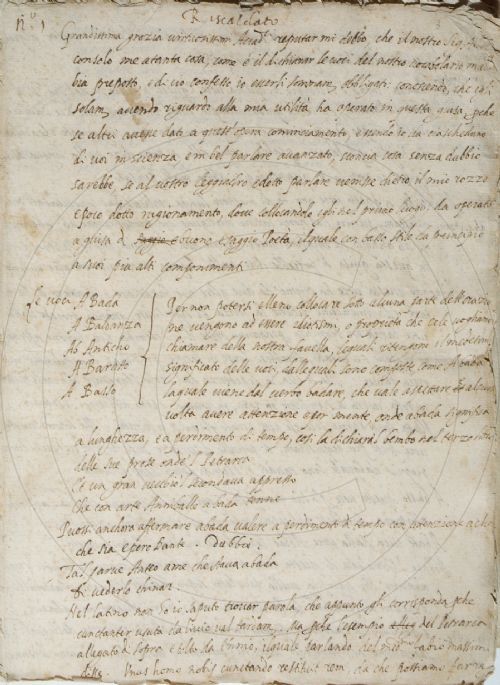 nº 1
Riscaldato
Grandissima grazia virtuosissimi Acad. reputar mi debbo che il nostro Sig.
consolo me a tanta cosa, come è il dichiarar le voci del nostro vocabolario m'
bia preposto, e di ciò confesso io esserli sommam. obbligato: conoscendo, che
solam. avendo riguardo alla mia utilità ha operato in questa guisa, pche
se altri avesse dato a quest'opera cominciamento, essendo io da ciascheduno
di voi in scienza, e in bel parlare avanzato, sconcia cosa senza dubbio
sarebbe, se al vostro leggiadro e dotto parlare venisse dietro il mio rozzo
e poco dotto ragionamento, dove collocando egli nel primo luogo ha operato
a guisa di buono e saggio Poeta, il quale con basso stile da principio
a suoi piu alti componimenti
Le voci A Bada
A Baldanza
Ab Antico
A Baratto
A Basso
Per non potersi elleno collocare sotto alcuna parte dell'orazio
ne vengono ad essere idiotismi, o proprietà che le vogliamo
chiamare della nostra favella, le quali ritengono il medesimo
significato delle voci, dalle quali sono composte come A bada
la quale viene dal verbo badare, che vale aspettare e alcuna
volta avere attenzione e por mente, onde abada significa
a lunghezza, e a perdimento di tempo, così la dichiara l bembo nel terzo
delle sue prose onde 'l Petrarca
Et un gran vecchio l secondava appresso
Che con arte Anniballo a bada tenne
Puossi anchora affermare abada valere a perdimento di tempo con attenzione a
che sia e però Dante. Dubbio.
Tal parve Anteo a me che stava abada
di vederlo chinar
Nel latino non so io saputo trovar parola, che appunto gli corrisponda, pche
cunctanter usata da Livio val tardam. Ma pche l'esempio del Petrarca
allegato di sopra è tolto da Ennio, il quale parlando del med. Fabio massimo
disse. Unus homo nobis cunctando restituit rem, da che possiamo